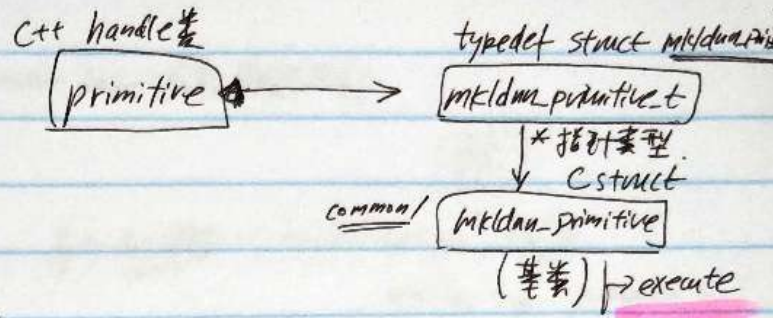 C++ handle类
typedef struct mkldnn_pri
primitive
mkldnn_primitive_t
* 指针类型.
C struct
common/
mkldnn_primitive
(基类) → execute